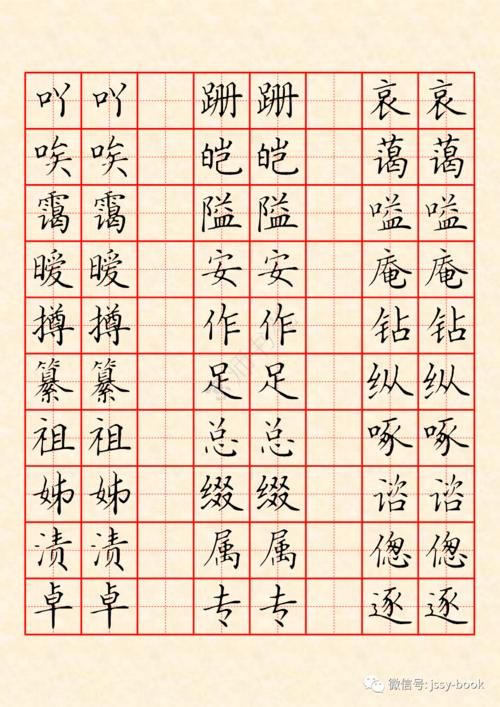 吖吖 跚跚 哀哀
唉唉 皑皑 蔼蔼
霭霭 隘隘 嗌嗌
暧暧 安安 庵庵
撙撙 作作 钻钻
纂纂 足足 纵纵
祖祖 总总 啄啄
姊姊 缀缀 谘谘
渍渍 属属 偬偬
卓卓 专专 逐逐
微信号: jssy-book